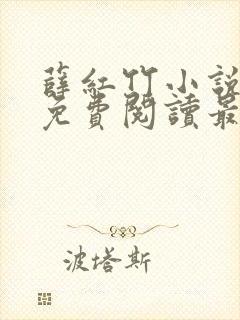 薛紅竹小說
免費閱讀最
波塔斯